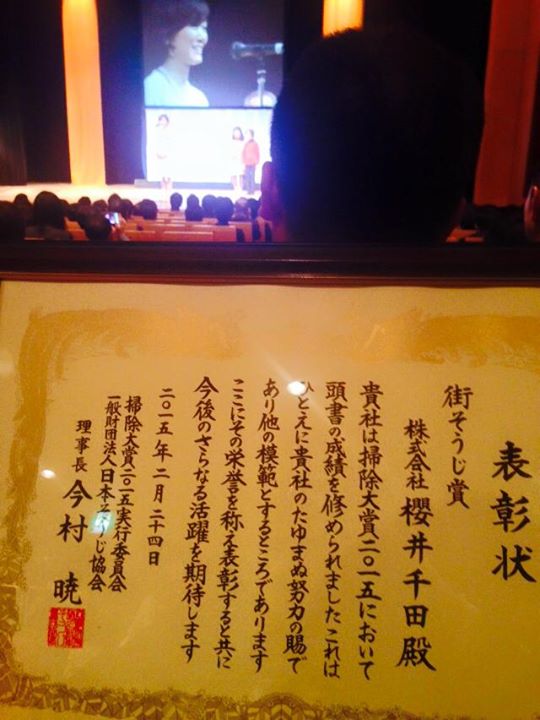 表彰状
街そうじ賞
株式会社 櫻井千田殿
貴社は掃除大賞二〇一五において
頭書の成績を修められましたこれは
ひとえに貴社のたゆまぬ努力の賜で
あり他の模範とするところであります
ここにその栄誉を称え表彰すると共に
今後のさらなる活躍を期待します
二〇一五年二月二十四日
掃除大賞二〇一五実行委員会
一般財団法人日本そうじ協会
理事長 今村 暁